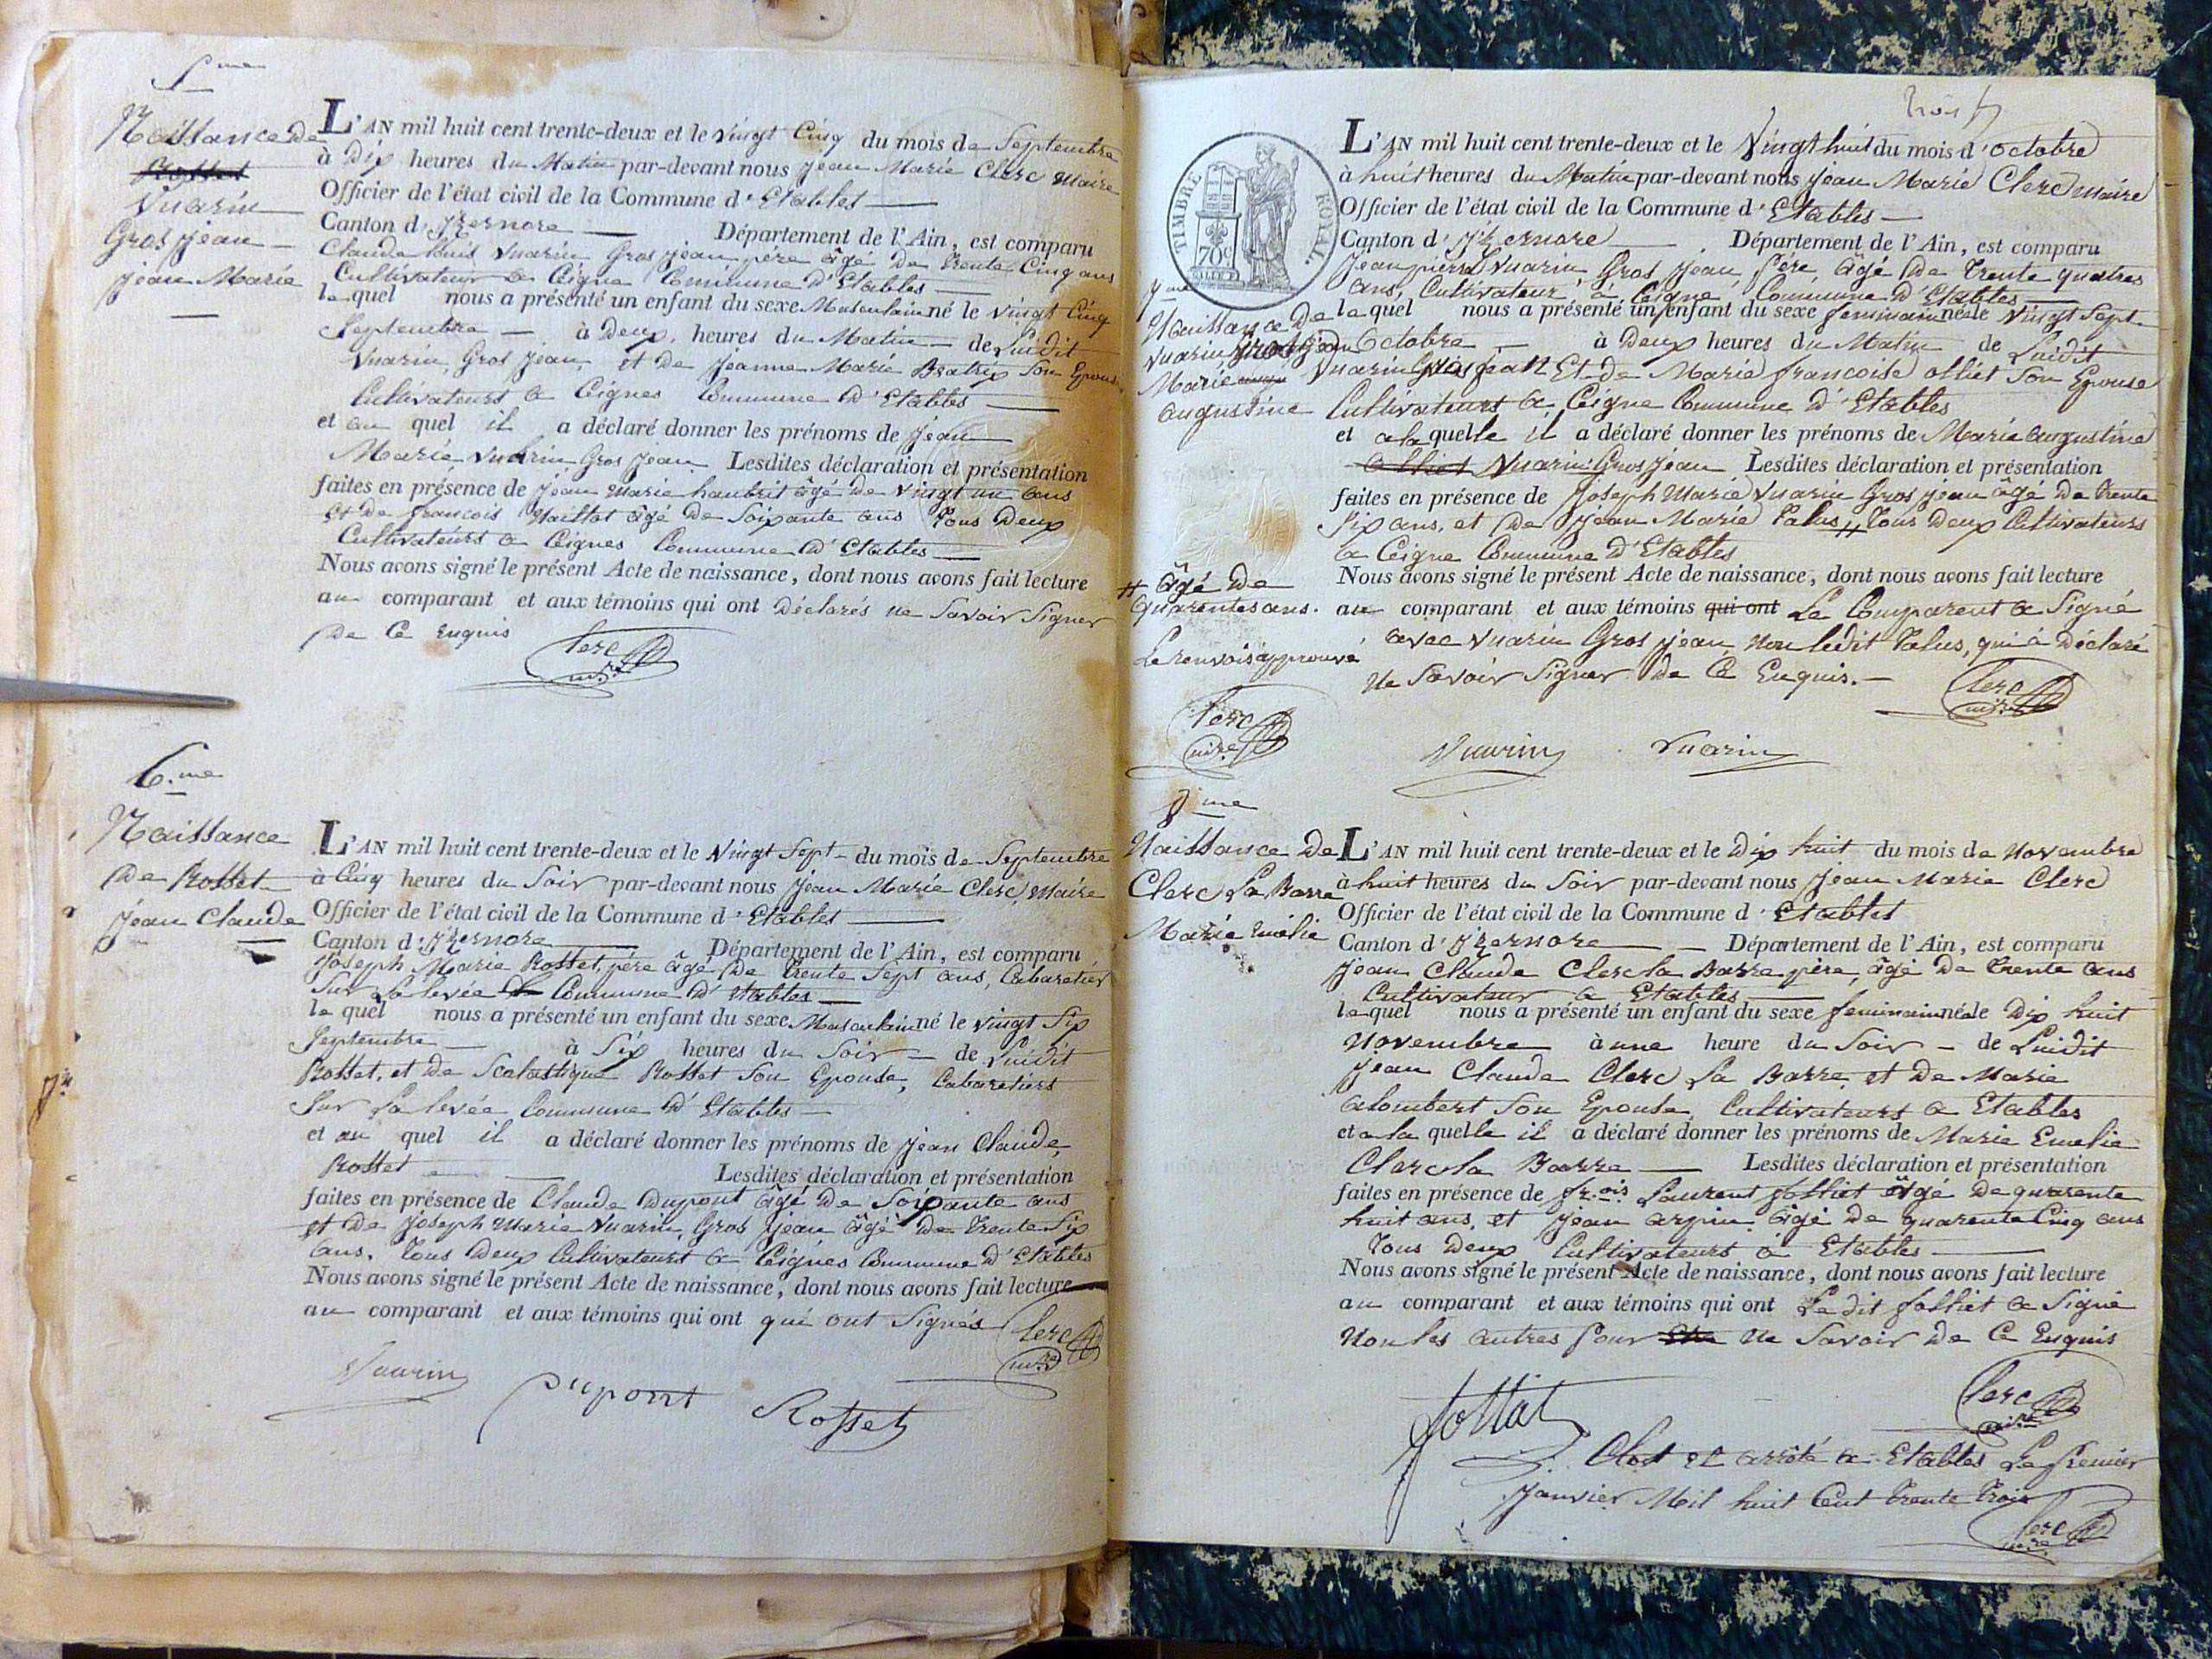 5.me
Naissance De
Rosset
Vuarin
Gros Jean
Jean Marie
L'AN mil huit cent trente-deux et le vingt Cinq du mois de Septembre
à Dix heures du Matin par-devant nous Jean Marie Clerc Maire
Officier de l'état civil de la Commune d'Etables
Canton d'Izernore Département de l'Ain, est comparu
Claude Louis Vuarin Gros Jean père âgé De trente Cinq ans
Cultivateur a Ceignes Commune d'Etables
lequel nous a présenté un enfant du sexe Masculain né le vingt Cinq
Septembre à Deux heures du Matin de Luidit
Vuarin Gros Jean, et de Jeanne Marie Beatrix Son Epouse
Cultivateurs a Ceignes Commune d'Etables
et au quel il a déclaré donner les prénoms de Jean
Marie Vuarin Gros Jean Lesdites déclaration et présentation
faites en présence de Jean Marie hambrit âgé De vingt un ans
et De francois Maillot âgé De Soixante ans Tous Deux
Cultivateurs a Ceignes Commune d'Etables
Nous avons signé le présent Acte de naissance, dont nous avons fait lecture
au comparant et aux témoins qui ont Déclarés ne Savoir Signer
De Ce Enquis
Clerc
m.re
6.me
Naissance
De Rosset
Jean Claude
L'AN mil huit cent trente-deux et le Vingt Sept du mois de Septembre
à Cinq heures du Soir par-devant nous Jean Marie Clerc, Maire
Officier de l'état civil de la Commune d'Etables
Canton d'Izernore Département de l'Ain, est comparu
Joseph Marie Rosset, père âgé De trente Sept ans, Cabaretier
Sur La levée Commune d'Etables
lequel nous a présenté un enfant du sexe Masculain né le vingt Six
Septembre à Six heures du Soir de Luidit
Rosset, et De Scolastique Rosset Son Epouse, Cabaretiers
Sur La levée Commune d'Etables
et au quel il a déclaré donner les prénoms de Jean Claude,
Rosset Lesdites déclaration et présentation
faites en présence de Claude Dupont âgé De Soixante ans
et De Joseph Marie Vuarin, Gros Jean âgé De trente Six
ans. Tous Deux Cultivateurs a Ceignes Commune d'Etables
Nous avons signé le présent Acte de naissance, dont nous avons fait lecture
au comparant et aux témoins qui ont qui ont Signés
Clerc
m.re
Vuarin
Dupont
Rosset
TIMBRE ROYAL.
70c
7.me
Naissance De
Vuarin Gros Jean
Marie
augustine
L'AN mil huit cent trente-deux et le Vingt huit du mois d'octobre
à huit heures du Matin par-devant nous Jean Marie Clerc Maire
Officier de l'état civil de la Commune d'Etables
Canton d'Izernore Département de l'Ain, est comparu
Jean pierre Vuarin Gros Jean père, âgé De trente quatres
ans, Cultivateur à Ceigne, Commune d'Etables
lequel nous a présenté un enfant du sexe feminain née le vingt Sept
Octobre à Deux heures du Matin de Luidit
Vuarin Gros Jean Et De Marie francoise olliet Son Epouse
Cultivateurs a Ceigne Commune d'Etables
et a la quelle il a déclaré donner les prénoms de Marie augustine
olliet Vuarin Gros Jean Lesdites déclaration et présentation
faites en présence de Joseph Marie Vuarin Gros Jean âgé De trente
Six ans, et De Jean Marie Palus, # Tous Deux Cultivateurs
a Ceigne Commune d'Etables
# âgé De
quarentes ans.
Le renvois approuvé
Clerc
m.re
Nous avons signé le présent Acte de naissance, dont nous avons fait lecture
au comparant et aux témoins qui ont Le Comparent a Signé
avec Vuarin Gros Jean, Non ledit Palus, qui à Déclaré
Ne Savoir Signer De Ce Enquis.
Clerc
m.re
Vuarin Vuarin
8.me
Naissance De
Clerc La Barre
Marie Emelie
L'AN mil huit cent trente-deux et le Dix huit du mois de Novembre
à huit heures du Soir par-devant nous Jean Marie Clerc
Officier de l'état civil de la Commune d'Etables
Canton d'Izernore Département de l'Ain, est comparu
Jean Claude Clerc la Barre père, âgé De trente ans
Cultivateur a Etables
lequel nous a présenté un enfant du sexe feminain née le Dix huit
Novembre à une heure du Soir de Luidit
Jean Claude Clerc La Barre et De Marie
alombert Son Epouse, Cultivateurs a Etables
et a la quelle il a déclaré donner les prénoms de Marie Emelie
Clerc la Barre Lesdites déclaration et présentation
faites en présence de fr.ois Laurent folliet âgé De quarente
huit ans, et Jean arpin, âgé De quarente Cinq ans
Tous Deux Cultivateurs à Etables
Nous avons signé le présent Acte de naissance, dont nous avons fait lecture
au comparant et aux témoins qui ont Le dit folliet a Signé
Non les autres Pour Ne Savoir De Ce Enquis
Clerc
maire
folliet
Clos et arrêté a Etables Le Premier
Janvier Mil huit Cent Trente Trois
Clerc
m.re